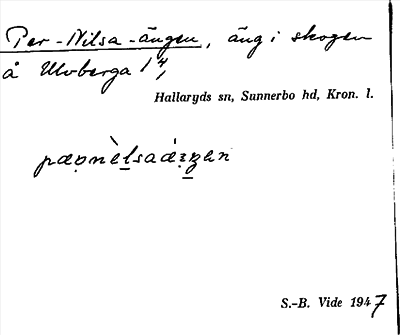 Per-Nilsa-ängen, äng i skogen
å Ulvberga 1⁴,
Hallaryds sn, Sunnerbo hd, Kron. l.
S.-B. Vide 1947